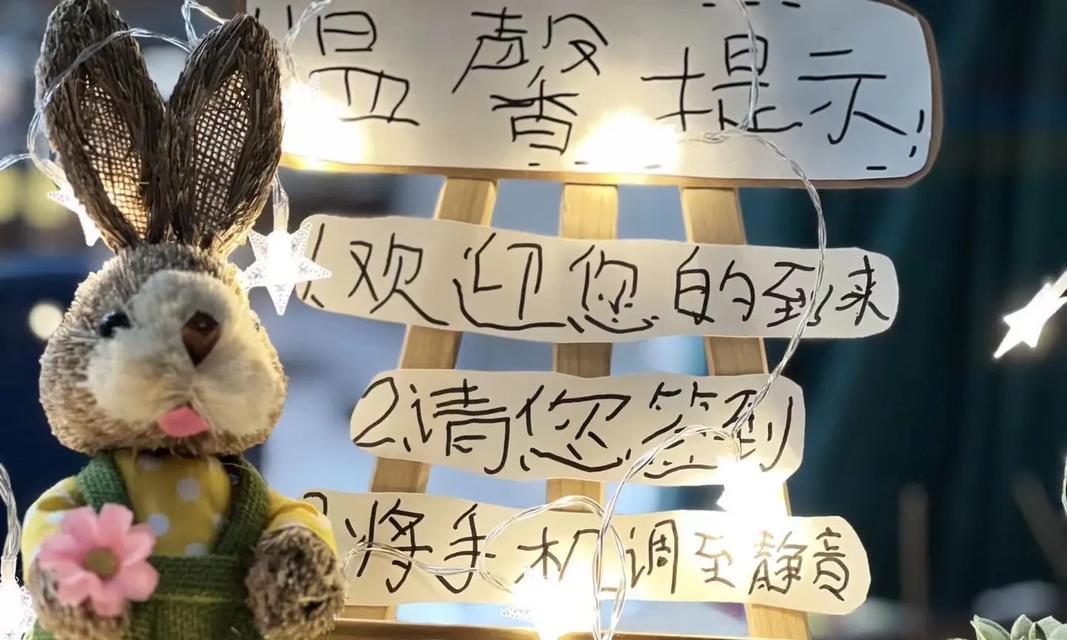 温馨提示
1.欢迎您的到来
2.请您签到
3.将手机调至静音